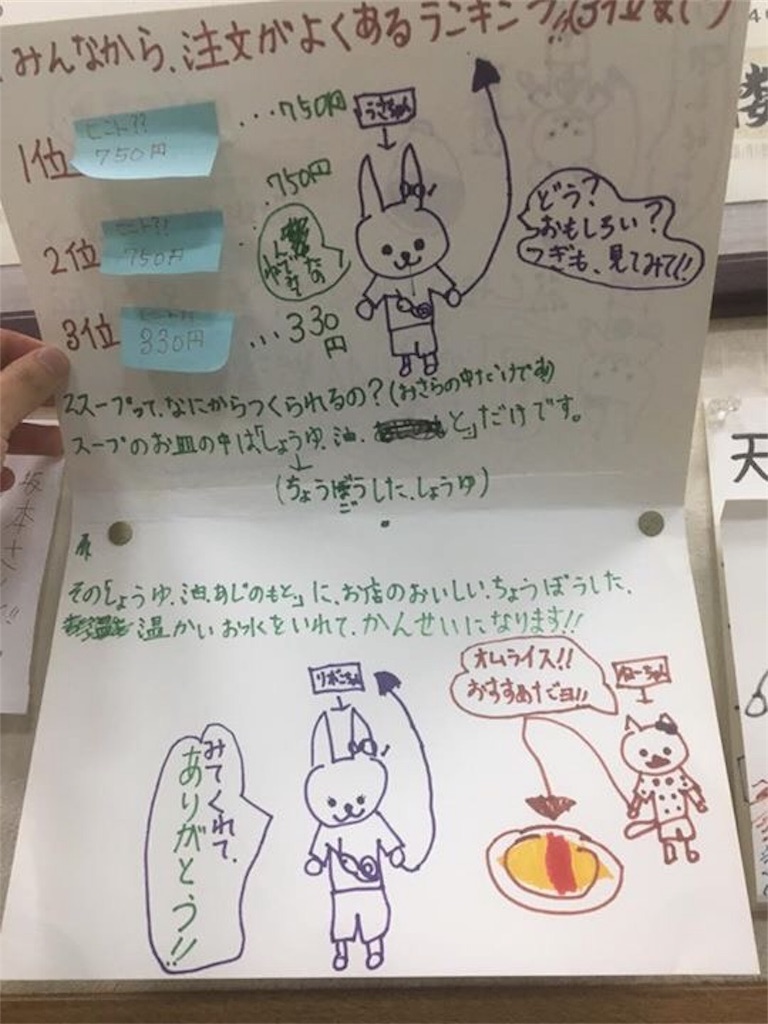 みんなから、注文がよくあるランキング!!(3位まで)
1位
ヒント??
750円
...750円
うさちゃん
2位
ヒント?!
750円
..750円
どう?
おもしろい?
つぎも、見てみて!!
3位
ヒント?!
330円
...330円
2スープって、なにからつくられるの?(おさらの中だけで
スープのお皿の中は「しょうゆ、油、と」だけです。
(ちょうごうした、しょうゆ)
その「しょうゆ、油、あじのもと」に、お店のおいしい、ちょうぼうした、
温かいお水をいれて、かんせいになります!!
リボンちゃん
オムライス!!
おすすめだヨ!!
ねーちゃん
みてくれて、
ありがとう!!
天
坂本さ